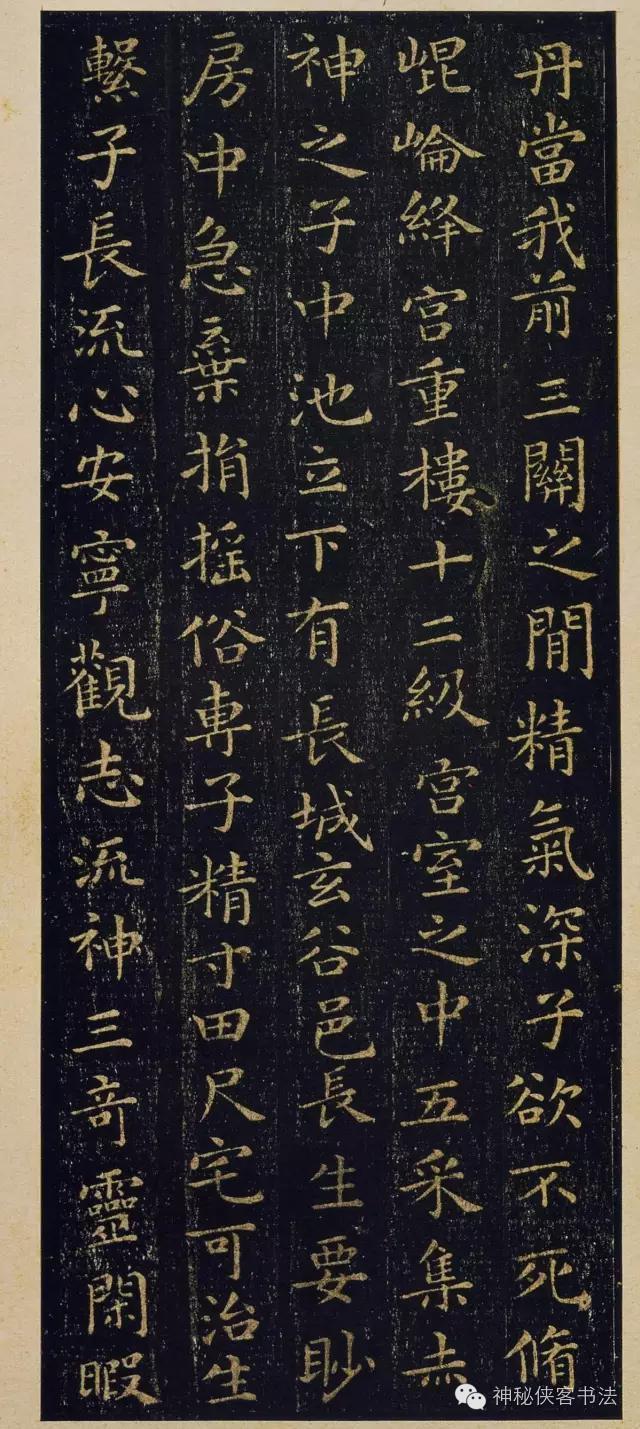 丹當我前三關之閒精氣深子欲不死脩
崐崘絳宮重樓十二級宮室之中五采集赤
神之子中池立下有長城玄谷邑長生要眇
房中急棄捐搖俗專子精寸田尺宅可治生
繫子長流心安寧觀志流神三奇靈閑暇
神秘侠客书法